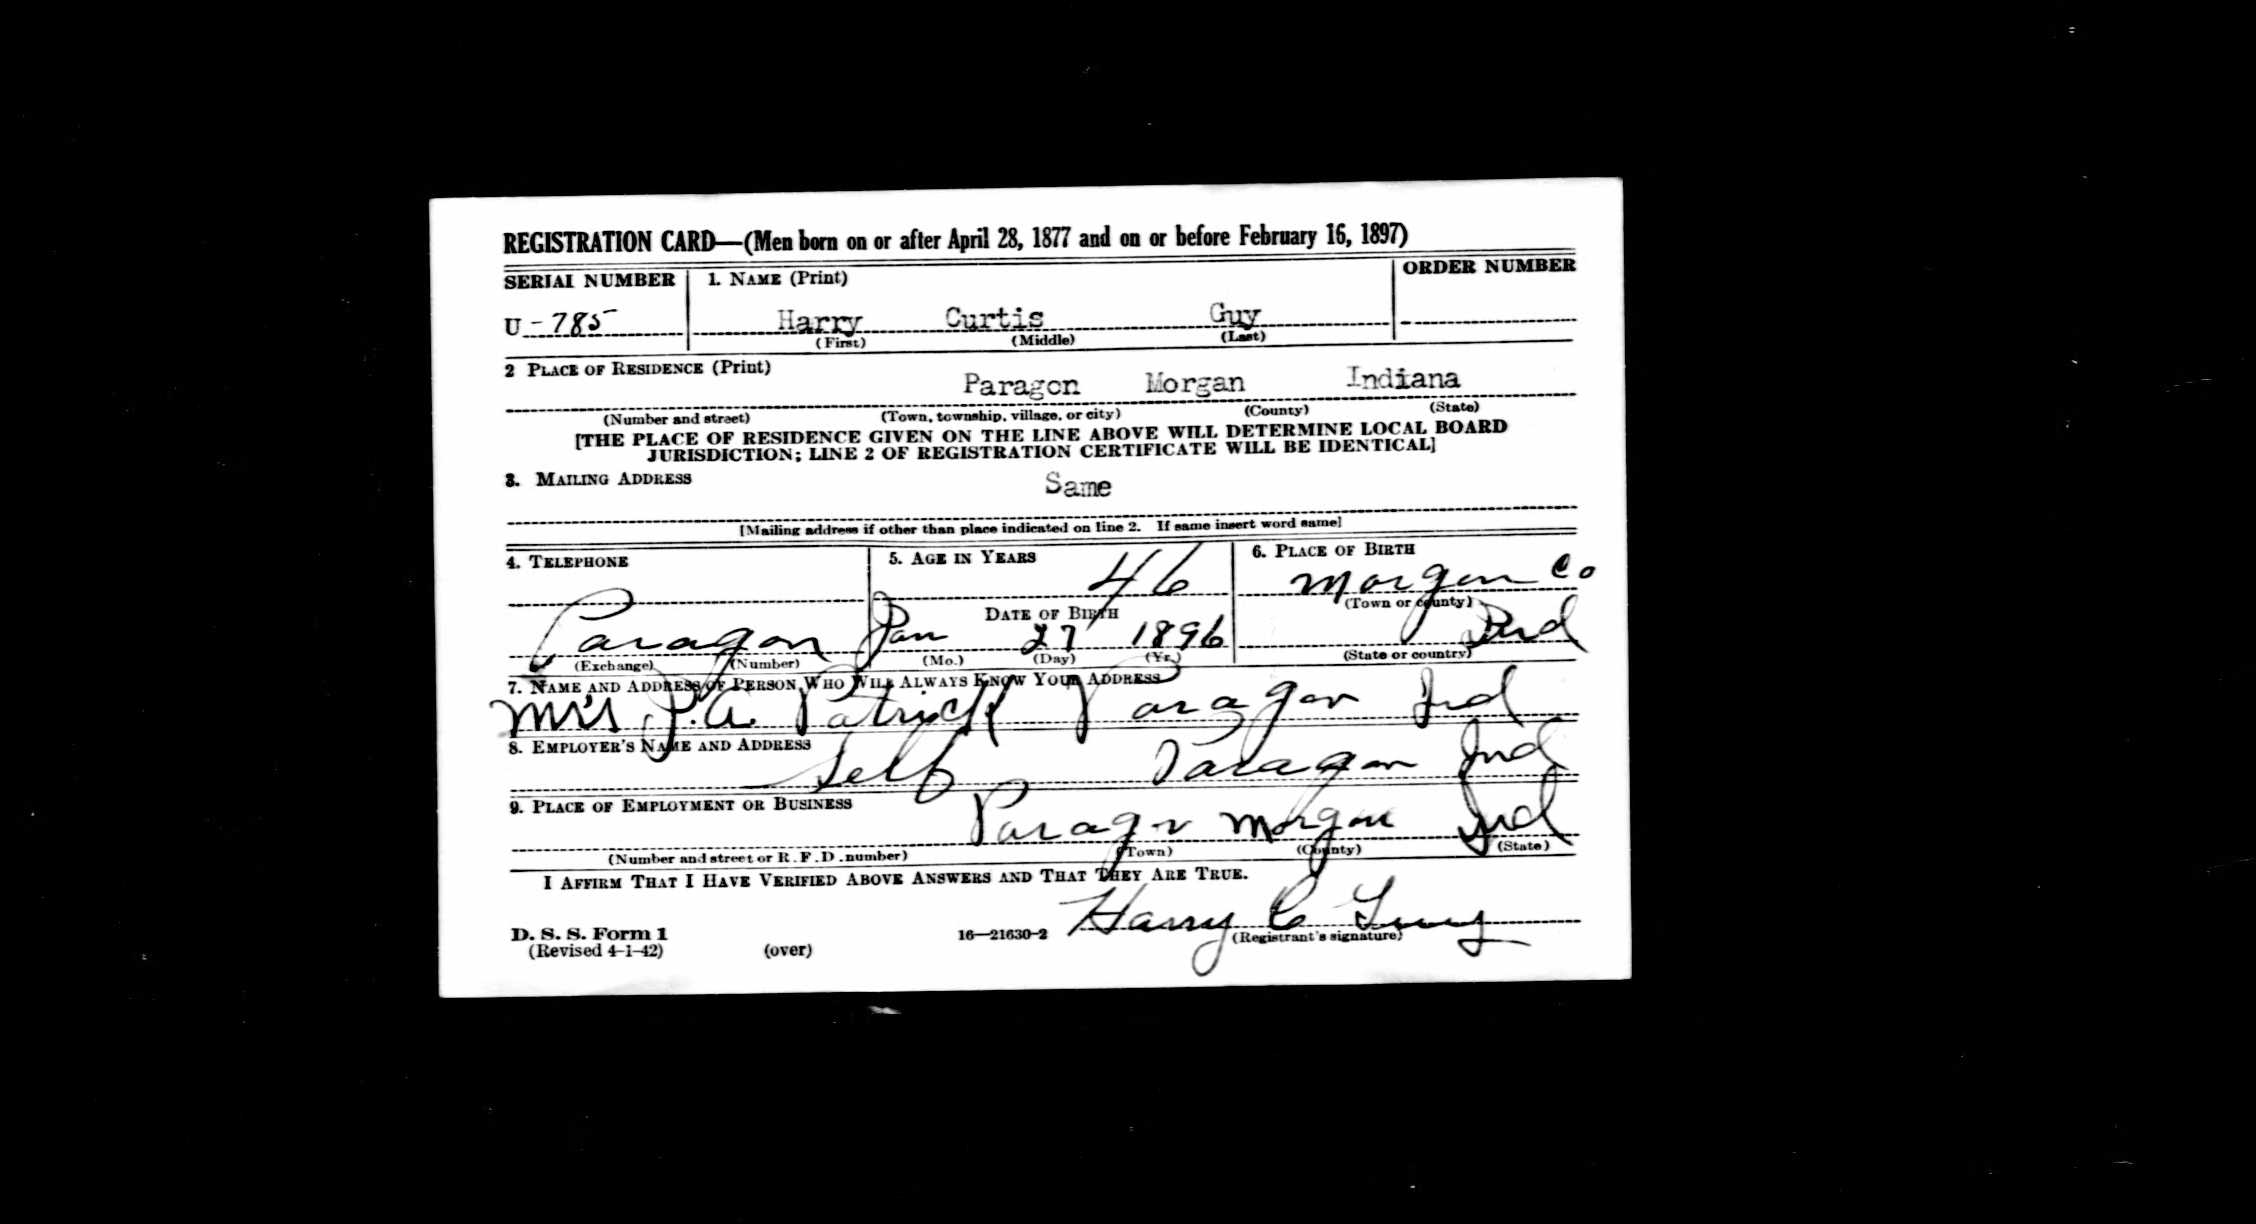 REGISTRATION CARD—(Men born on or after April 28, 1877 and on or before February 16, 1897)
SERIAL NUMBER 1. NAME (Print) ORDER NUMBER
U-785 Harry Curtis Guy
(First) (Middle) (Last)
2 PLACE OF RESIDENCE (Print)
Paragon Morgan Indiana
(Number and street) (Town, township, village, or city) (County) (State)
[THE PLACE OF RESIDENCE GIVEN ON THE LINE ABOVE WILL DETERMINE LOCAL BOARD
JURISDICTION; LINE 2 OF REGISTRATION CERTIFICATE WILL BE IDENTICAL]
3. MAILING ADDRESS
Same
[Mailing address if other than place indicated on line 2. If same insert word same]
4. TELEPHONE 5. AGE IN YEARS 6. PLACE OF BIRTH
46 Morgan Co
DATE OF BIRTH (Town or county)
Paragon Jan 27 1896 Ind
(Exchange) (Number) (Mo.) (Day) (Yr.) (State or country)
7. NAME AND ADDRESS OF PERSON WHO WILL ALWAYS KNOW YOUR ADDRESS
Mrs J.A. Patrick Paragon Ind
8. EMPLOYER'S NAME AND ADDRESS
Self Paragon Ind
9. PLACE OF EMPLOYMENT OR BUSINESS
Paragon Morgan Ind
(Number and street or R.F.D. number) (Town) (County) (State)
I AFFIRM THAT I HAVE VERIFIED ABOVE ANSWERS AND THAT THEY ARE TRUE.
Harry C Guy
D. S. S. Form 1 16—21630-2 (Registrant's signature)
(Revised 4-1-42) (over)